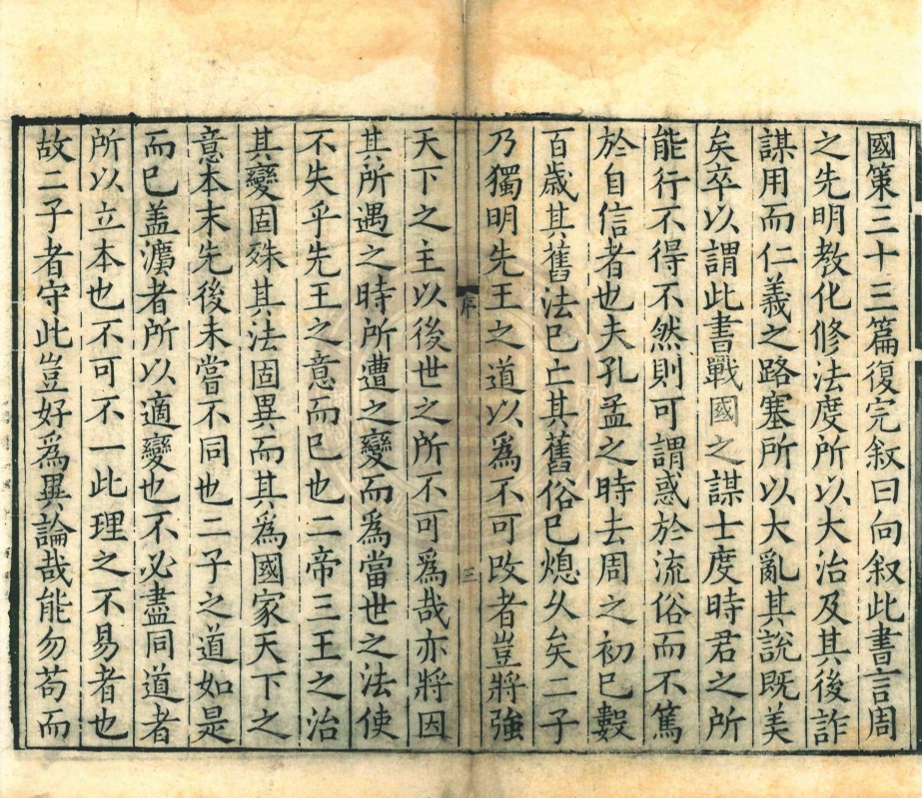 國策三十三篇復完叙曰向叙此書言周
之先明教化修法度所以大治及其後詐
謀用而仁義之路塞所以大亂其説既美
矣卒以謂此書戰國之謀士度時君之所
能行不得不然則可謂惑於流俗而不篤
於自信者也夫孔孟之時去周之初已數
百歲其舊法已亡其舊俗已熄乆矣二子
乃獨明先王之道以爲不可攺者豈將強
序
三
天下之主以後世之所不可爲哉亦將因
其所遇之時所遭之變而爲當世之法使
不失乎先王之意而已也二帝三王之治
其變固殊其法固異而其爲國家天下之
意本末先後未嘗不同也二子之道如是
而已盖灋者所以適變也不必盡同道者
所以立本也不可不一此理之不易者也
故二子者守此豈好爲異論哉能勿苟而